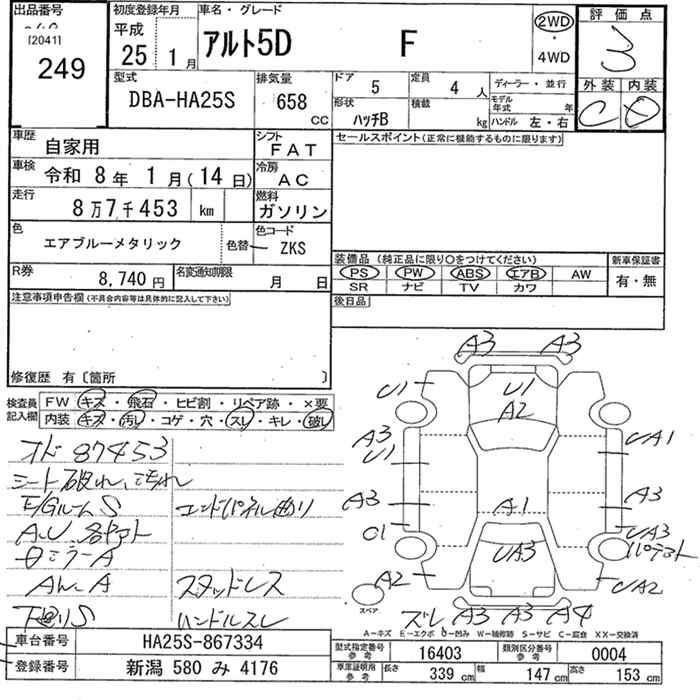 出品番号
[20411
249
初度登録年月
平成
25 1月
車名・グレード
アルト5D F
2WD
・
4WD
評価点
3
外装 内装
C D
型式
DBA-HA25S
排気量
658
cc
ドア 5
定員 4 人
形状
ハッチB
積載
kg
ディーラー・並行
モデル
年式 年
ハンドル 左・右
車歴
自家用
シフト
FAT
車検
令和 8年 1月(14日)
冷房
AC
走行
8万7千453 km
燃料
ガソリン
色
エアブルーメタリック
色替
色コード
ZKS
R券
8,740 円
名変通知期限
月 日
注意事項申告欄(不具合内容等は具体的に記入して下さい)
修復歴 有〔箇所 〕
セールスポイント(正常に機能するものに限ります)
装備品(純正品に限り○をつけてください)
PS PW ABS エアB AW
SR ナビ TV カワ
新車保証書
有・無
後日品
検査員
記入欄
FW キズ・飛石・ヒビ割・リペア跡・×要
内装・キズ・汚レ・コゲ・穴・スレ・キレ・破レ
オド 87453
シート破れ、汚れ
E/GルームS
エンドパネル曲り
A、U、各ヤマト
ロミラーA
スタッドレス
下廻りS
ハンドルスレ
A3 A3
U1 U1
A2
A3
U1
UA1
A3 A1 A3
U1
UA3
UA3
A2 UA2
スペア
ズレ A3 A3 A4
A-キズ E-エクボ U-凹み W-補修跡 S-サビ C-腐食 XX-交換済
車台番号 HA25S-867334
登録番号 新潟 580 み 4176
型式指定番号
参考
16403
類別区分番号
参考
0004
車庫証明用
参考
長さ 339 cm
幅 147 cm
高さ 153 cm